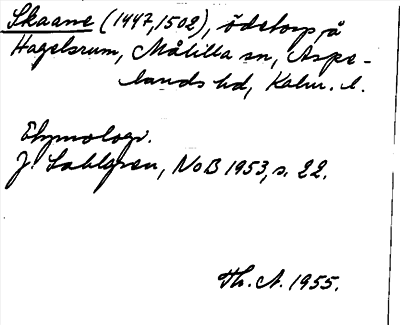 Skaane (1447, 1502), ödetorp på
Hagelsrum, Målilla sn, Aspe-
lands hd, Kalm. l.
Etymologi.
J. Sahlgren, NoB 1953, s. 22.
Th. A. 1955.